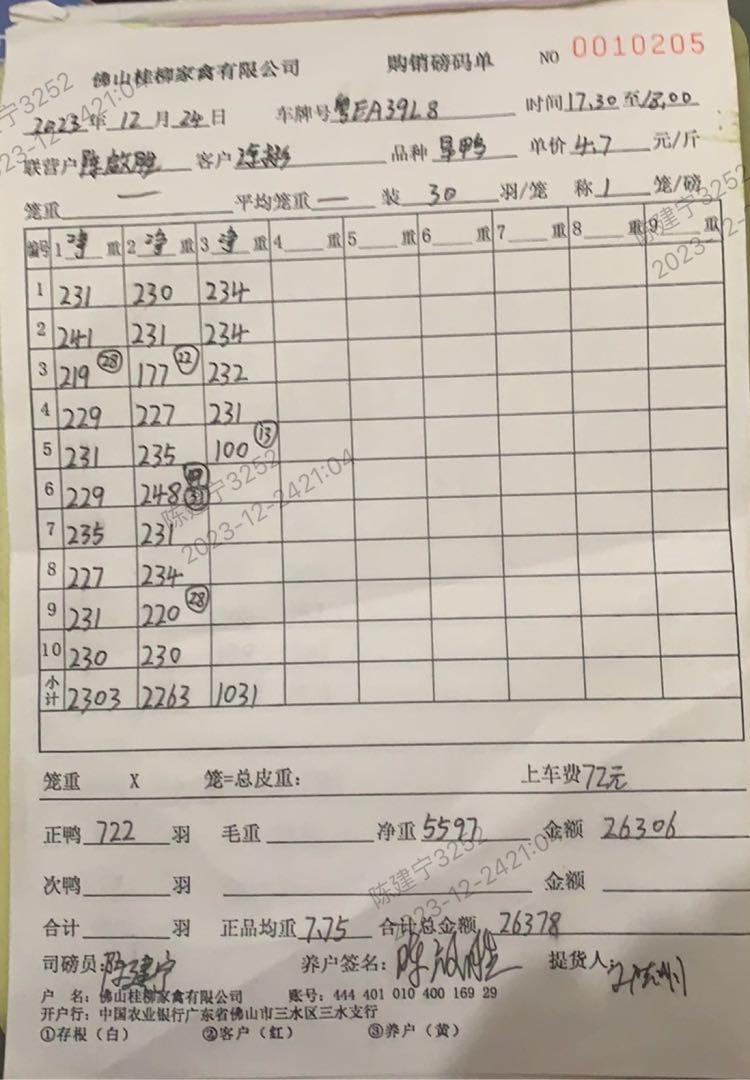 佛山桂柳家禽有限公司 购销磅码单 NO 0010205
2023年12月24日 车牌号粤EA39L8 时间17.30至18.00
联营户陈啟胜 客户 品种 旱鸭 单价4.7元/斤
笼重 — 平均笼重 — 装 30 羽/笼 称1笼/磅
编号 1净重 2净重 3净重 4重 5重 6重 7重 8重 9重
1 231 230 234
2 241 231 234
3 219 28 177 22 232
4 229 227 231
5 231 235 100 13
6 229 248 31
7 235 231
8 227 234
9 231 220 28
10 230 230
小计 2303 2263 1031
笼重 X 笼=总皮重: 上车费72元
正鸭 722 羽 毛重 净重5597 金额 26306
次鸭 羽 金额
合计 羽 正品均重7.75 合计总金额 26378
司磅员:陈建宁 养户签名:陈啟胜 提货人:
户 名:佛山桂柳家禽有限公司 账号:444 401 010 400 169 29
开户行:中国农业银行广东省佛山市三水区三水支行
①存根(白) ②客户(红) ③养户(黄)
陈建宁3252
2023-12-2421:04
陈建宁3252
2023-12-2421:04
陈建宁3252
2023-12-2421:04